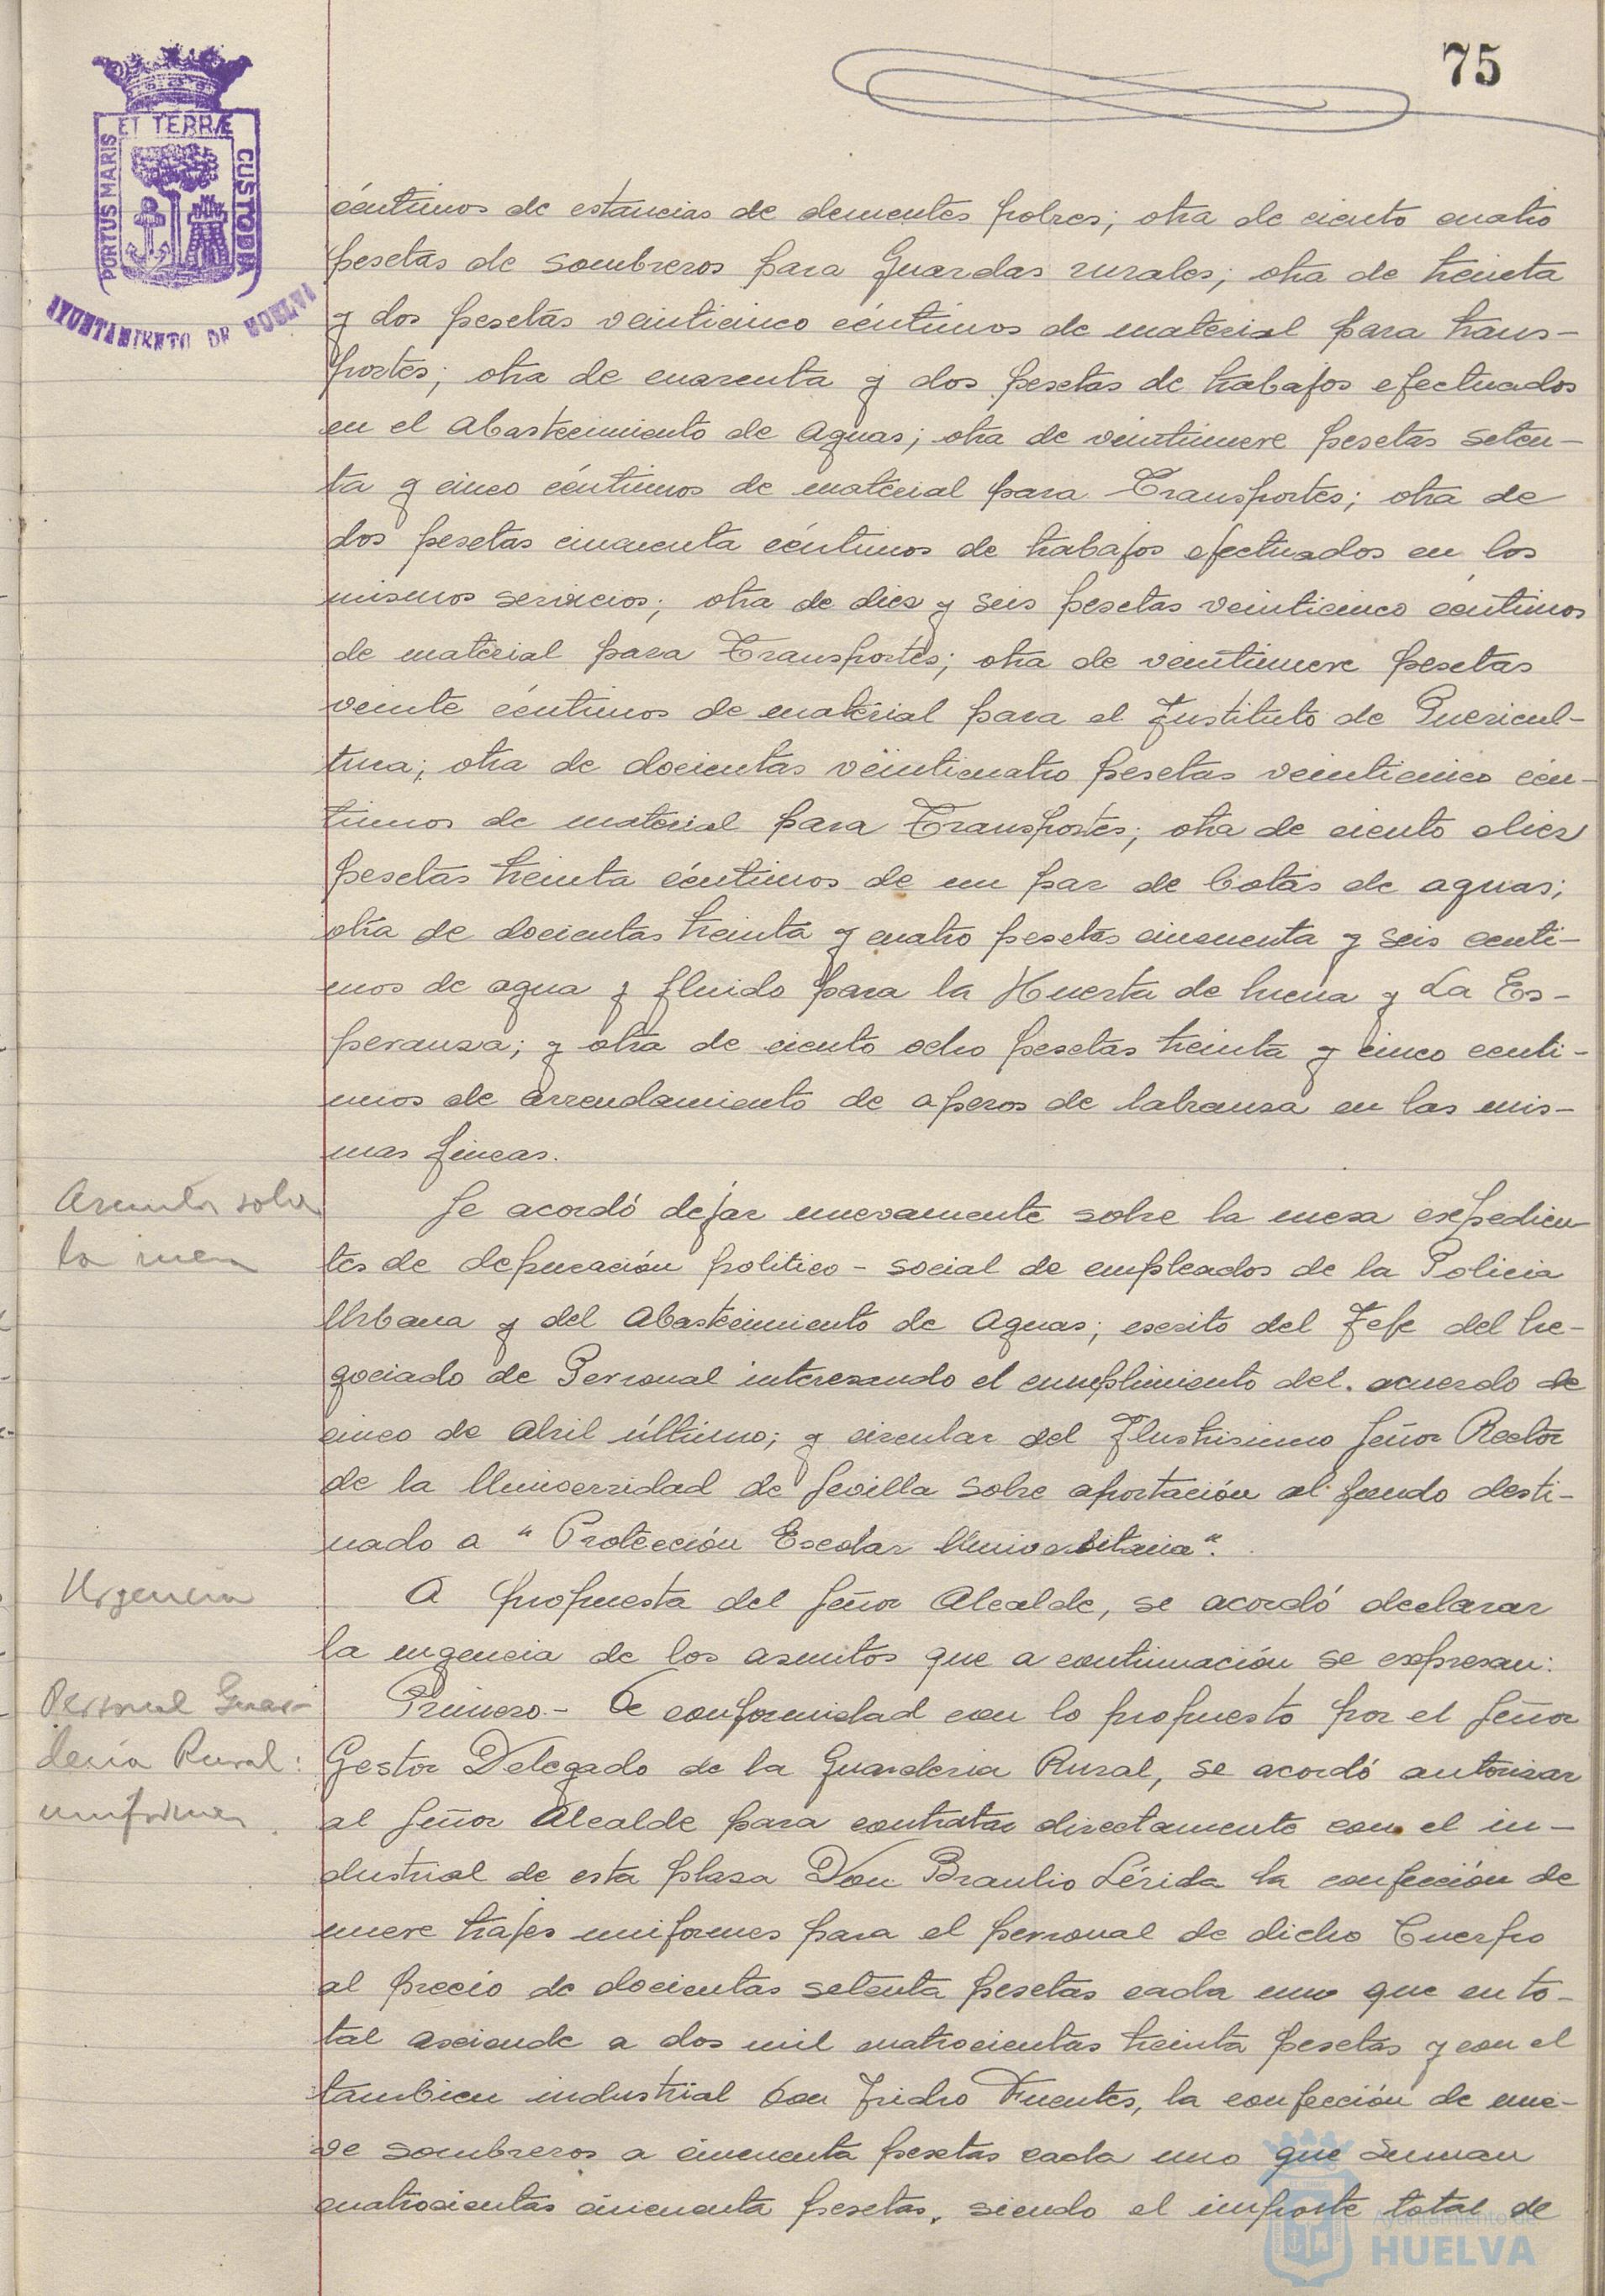 75
ET TERRÆ
PORTUS MARIS
CUSTODIA
AYUNTAMIENTO DE HUELVA
céntimos de estancias de dementes pobres; otra de ciento cuatro
pesetas de sombreros para Guardas rurales; otra de treinta
y dos pesetas veinticinco céntimos de material para trans-
portes; otra de cuarenta y dos pesetas de trabajos efectuados
en el Abastecimiento de Aguas; otra de veintinueve pesetas seten-
ta y cinco céntimos de material para Transportes; otra de
dos pesetas cincuenta céntimos de trabajos efectuados en los
mismos servicios; otra de diez y seis pesetas veinticinco céntimos
de material para Transportes; otra de veintinueve pesetas
veinte céntimos de material para el Instituto de Puericul-
tura; otra de docientas veinticuatro pesetas veinticinco cén-
timos de material para Transportes; otra de ciento diez
pesetas treinta céntimos de un par de botas de aguas;
otra de docientas treinta y cuatro pesetas cincuenta y seis centi-
mos de agua y fluido para la Huerta de Mena y La Es-
peranza; y otra de ciento ocho pesetas treinta y cinco centi-
mos de arrendamiento de aperos de labranza en las mis-
mas fincas.
Asuntos sobre
la mesa
Se acordó dejar nuevamente sobre la mesa expedien-
tes de depuración politico-social de empleados de la Policia
Urbana y del Abastecimiento de Aguas; escrito del Jefe del Ne-
gociado de Personal interesando el cumplimiento del acuerdo de
cinco de Abril último; y circular del Ilustrisimo Señor Rector
de la Universidad de Sevilla sobre aportación al fondo desti-
nado a "Protección Escolar Universitaria".
Urgencia
A propuesta del Señor Alcalde, se acordó declarar
la urgencia de los asuntos que a continuación se expresan:
Personal Guar-
deria Rural:
uniformes
Primero.- De conformidad con lo propuesto por el Señor
Gestor Delegado de la Guarderia Rural, se acordó autorizar
al Señor Alcalde para contratar directamente con el in-
dustrial de esta plaza Don Braulio Lérida la confección de
nueve trajes uniformes para el personal de dicho Cuerpo
al precio de docientas setenta pesetas cada uno que en to-
tal asciende a dos mil cuatrocientas treinta pesetas y con el
tambien industrial Don Isidro Fuentes, la confección de nue-
ve sombreros a cincuenta pesetas cada uno que suman
cuatrocientas cincuenta pesetas, siendo el importe total de
Ayuntamiento de
HUELVA